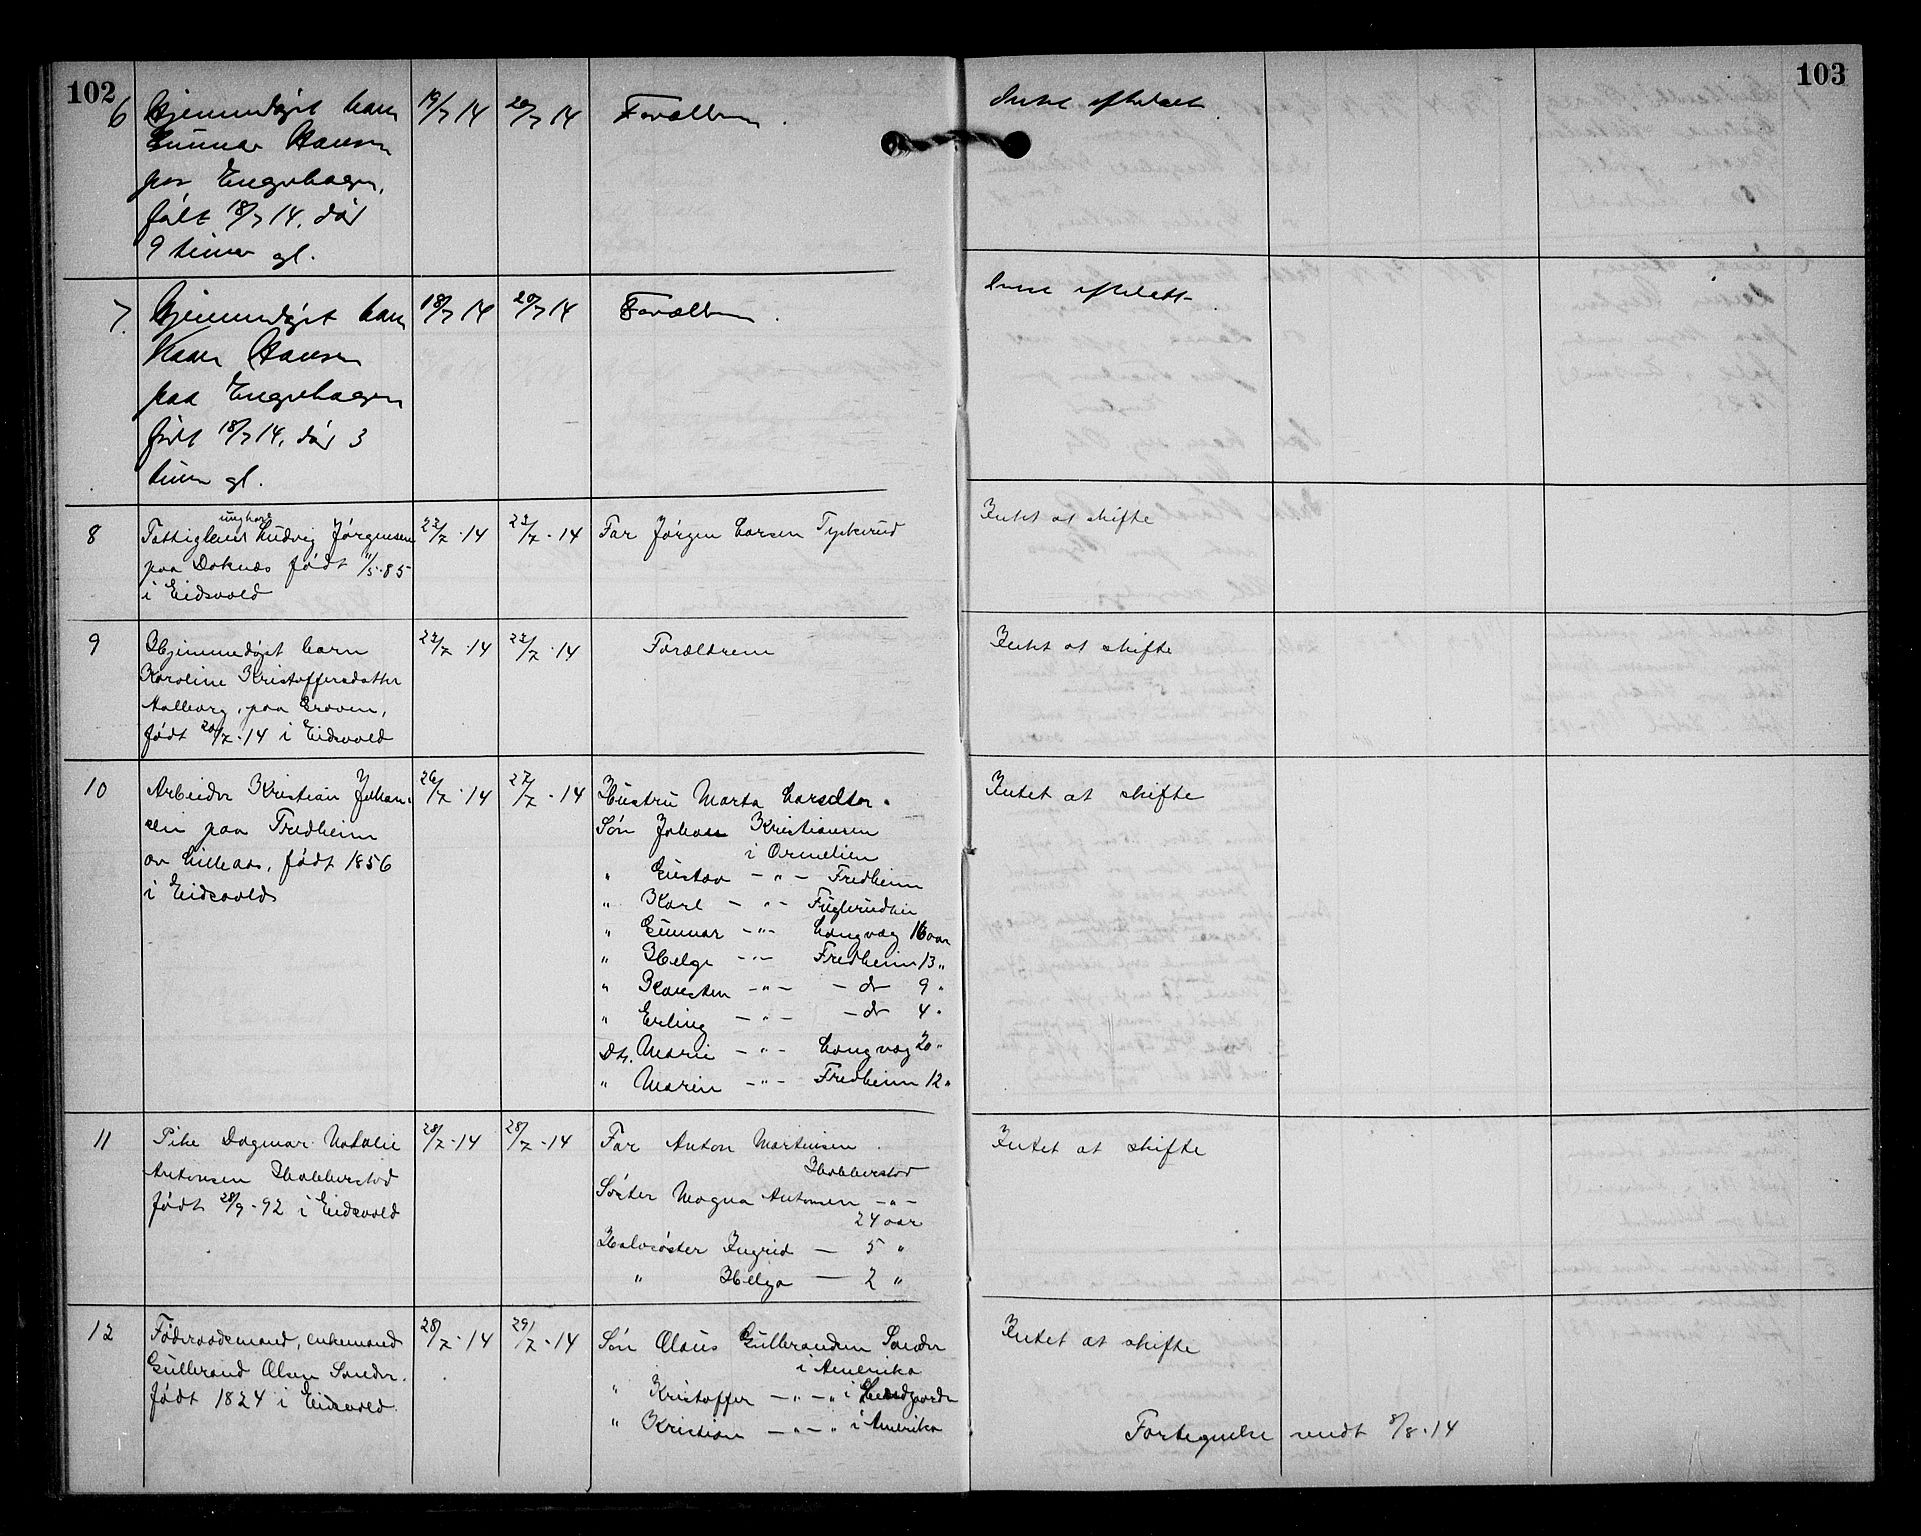 102
103
6 Hjemmedøpt barn 19/7 14 20/7 14 Forældrene. Intet efterladt
Gunnar Hansen
paa Engehagen,
født 18/7 14, død
9 timer gl.
7. Hjemmedøpt barn 18/7 14 20/7 14 Forældrene. Intet efterladt
Kaare Hansen
paa Engehagen
født 18/7 14, død 3
timer gl.
8 Fattiglem ungkare Ludvig Jørgensen 22/7·14 23/7·14 Far Jørgen Larsen Tyskerud Intet at skifte
paa Doknæs født 11/5·85
i Eidsvold
9 Hjemmedøpt barn 22/7·14 23/7·14 Forældrene Intet at skifte
Karoline Kristoffersdatter
Aalborg, paa Groven,
født 20/7·14 i Eidsvold
10 Arbeider Kristian Johan- 26/7·14 27/7·14 Hustru Marta Larsdtter. Intet at skifte
sen paa Fredheim Søn Johan Kristiansen
av Lilleaas, født 1856 i Ormelien
i Eidsvold " Gustav — " — Fredheim
" Karl — " — Fuglerudlien
" Gunnar — " — Langvæg 16 aar
" Helge — " — Fredheim 13 "
" Karsten — " — — do 9 "
" Erling — " — — do 4 "
Dtr. Marie — " — Langvæg 20 "
" Maren — " — Fredheim 12 "
11 Pike Dagmar Natalie 28/7·14 28/7·14 Far Anton Martinsen Intet at skifte
Antonsen Habberstad Habberstad
født 28/9·92 i Eidsvold Søster Magna Antonsen — " —
24 aar
Halvsøster Ingrid — 5 "
" Helga — 2 "
12 Føderaadsmand, enkemand 28/7·14 29/7·14 Søn Olaus Gulbrandsen Sander Intet at skifte
Gulbrand Olsen Sander. i Amerika
født 1824 i Eidsvold. " Kristoffer — " — " i
" Kristian — " — " i Amerika
Fortegnelse sendt 8/8·14